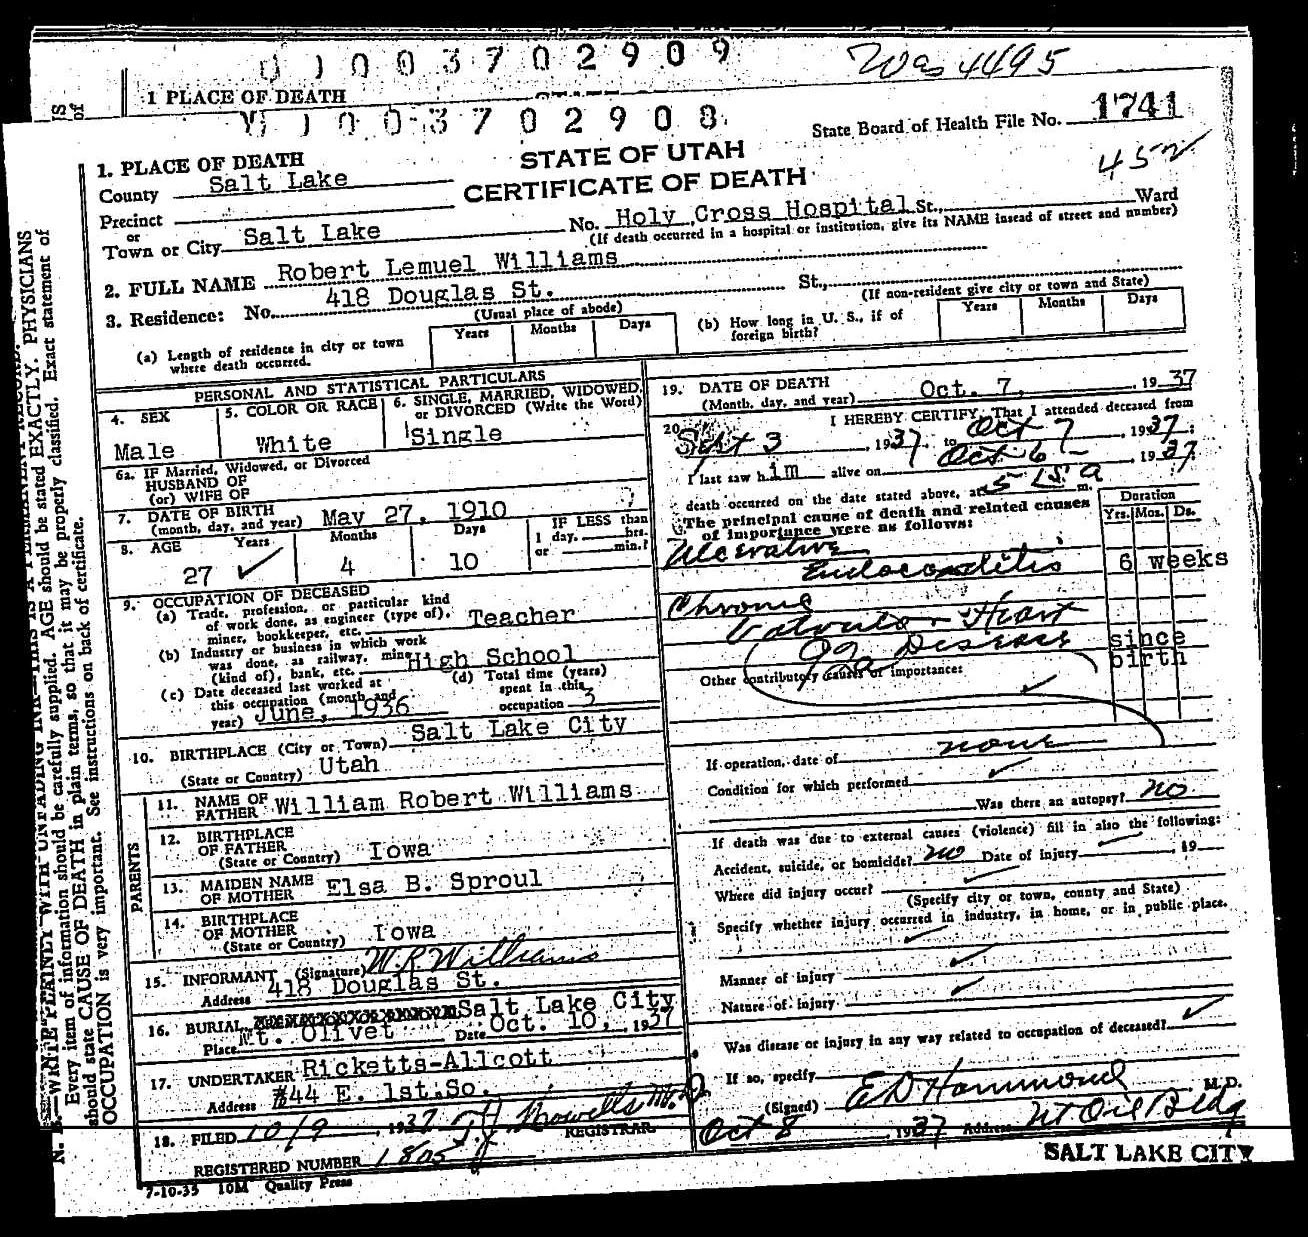 0 1 0 0 3 7 0 2 9 0 9
Was 4495
1 PLACE OF DEATH
1 0 0 3 7 0 2 9 0 8
State Board of Health File No. 1741
452
STATE OF UTAH
CERTIFICATE OF DEATH
1. PLACE OF DEATH
County Salt Lake
Precinct
or
Town or City Salt Lake No. Holy Cross Hospital St., Ward
(If death occurred in a hospital or institution, give its NAME insead of street and number)
2. FULL NAME Robert Lemuel Williams
3. Residence: No. 418 Douglas St. St.,
(Usual place of abode) (If non-resident give city or town and State)
(a) Length of residence in city or town where death occurred. Years Months Days
(b) How long in U. S., if of foreign birth? Years Months Days
PERSONAL AND STATISTICAL PARTICULARS
4. SEX Male
5. COLOR OR RACE White
6. SINGLE, MARRIED, WIDOWED, or DIVORCED (Write the Word) Single
6a. IF Married, Widowed, or Divorced
HUSBAND OF
(or) WIFE OF
7. DATE OF BIRTH
(month, day, and year) May 27, 1910
8. AGE Years 27 Months 4 Days 10
IF LESS than
1 day, hrs.
or min.?
9. OCCUPATION OF DECEASED
(a) Trade, profession, or particular kind
of work done, as engineer (type of),
miner, bookkeeper, etc. Teacher
(b) Industry or business in which work
was done, as railway, mine
(kind of), bank, etc. High School
(c) Date deceased last worked at
this occupation (month and
year) June, 1936
(d) Total time (years)
spent in this
occupation 3
10. BIRTHPLACE (City or Town) Salt Lake City
(State or Country) Utah
PARENTS
11. NAME OF FATHER William Robert Williams
12. BIRTHPLACE OF FATHER
(State or Country) Iowa
13. MAIDEN NAME OF MOTHER Elsa B. Sproul
14. BIRTHPLACE OF MOTHER
(State or Country) Iowa
15. INFORMANT (Signature) W. R. Williams
Address 418 Douglas St.
16. BURIAL, Salt Lake City
Place Mt. Olivet Date Oct. 10, 1937
17. UNDERTAKER Ricketts-Allcott
Address 44 E. 1st.So.
18. FILED 10/9, 1937 T J Howells M.D.
REGISTRAR
REGISTERED NUMBER 1805
7-10-35 10M Quality Press
19. DATE OF DEATH
(Month, day, and year) Oct. 7, 1937
20. I HEREBY CERTIFY, That I attended deceased from
Sept 3, 1937, to Oct 7, 1937;
I last saw him alive on Oct 6, 1937
death occurred on the date stated above, at 5 15 a m.
The principal cause of death and related causes
of importance were as follows:
Duration
Yrs. Mos. Ds.
Ulcerative
Endocarditis 6 weeks
Chronic
Valvular Heart
Disease since
92a birth
Other contributory causes of importance:
If operation, date of none
Condition for which performed
Was there an autopsy? no
If death was due to external causes (violence) fill in also the following:
Accident, suicide, or homicide? no Date of injury 19
Where did injury occur?
(Specify city or town, county and State)
Specify whether injury occurred in industry, in home, or in public place.
Manner of injury
Nature of injury
Was disease or injury in any way related to occupation of deceased?
If so, specify
(Signed) E D Hammond M.D.
Oct 8, 1937 Address Ut Oil Bldg
SALT LAKE CITY
N. B. WRITE PLAINLY WITH UNFADING INK—THIS IS A PERMANENT RECORD.
Every item of information should be carefully supplied. AGE should be stated EXACTLY. PHYSICIANS
should state CAUSE OF DEATH in plain terms, so that it may be properly classified. Exact statement of
OCCUPATION is very important. See instructions on back of certificate.